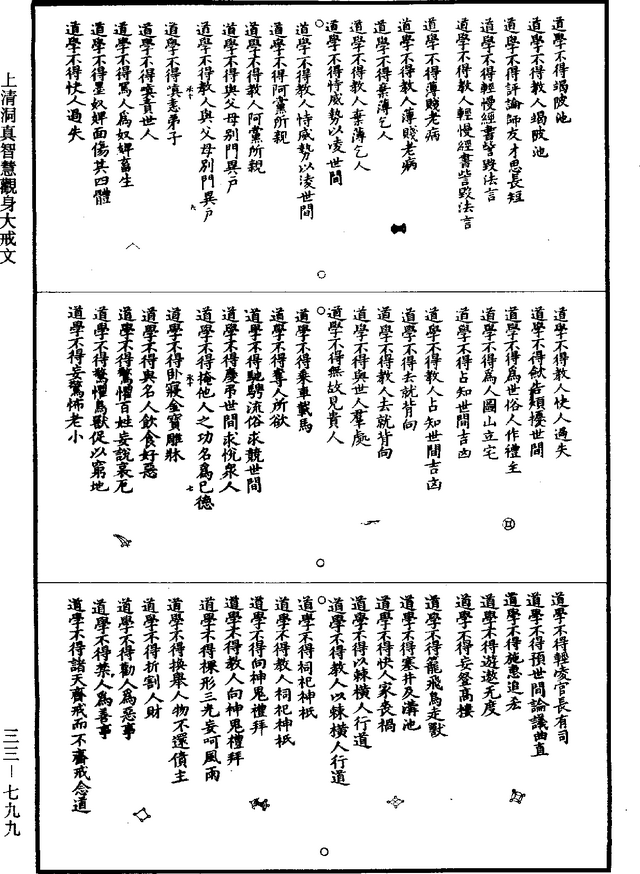 道學不得竭陂池
道學不得教人竭陂池
道學不得評論師友才思長短
道學不得輕慢經書訾毀法言
道學不得教人輕慢經書訾毀法言
道學不得薄賤老病
道學不得教人薄賤老病
道學不得棄薄乞人
道學不得教人棄薄乞人
道學不得恃威勢以凌世間
道學不得教人恃威勢以凌世間
道學不得阿黨所親
道學不得教人阿黨所親
道學不得與父母別門異戶
道學不得教人與父母別門異戶
道學不得嗔恚弟子
道學不得嗔責世人
道學不得罵人為奴婢畜生
道學不得黥奴婢面傷其四體
道學不得快人過失
道學不得教人快人過失
道學不得飲告類擾世間
道學不得為世俗人作禮主
道學不得為人圖山立宅
道學不得占知世間吉凶
道學不得教人占知世間吉凶
道學不得去就背向
道學不得教人去就背向
道學不得與世人羣處
道學不得無故見貴人
道學不得乘車載馬
道學不得專人所欲
道學不得馳騁流俗求競世間
道學不得慶弔世間求悅衆人
道學不得掩他人之功名為己德
道學不得卧寢金寶雕牀
道學不得與名人飲食好惡
道學不得驚懼百姓妄說哀厄
道學不得驚懼鳥獸促以窮地
道學不得妄驚怖老小
道學不得輕凌官長有司
道學不得預世間論議曲直
道學不得施惠追悋
道學不得遊遨无度
道學不得妄登高樓
道學不得籠飛鳥走獸
道學不得塞井及溝池
道學不得快人家喪禍
道學不得以棘橫人行道
道學不得教人以棘橫人行道
道學不得祠祀神祇
道學不得教人祠祀神祇
道學不得向神鬼禮拜
道學不得教人向神鬼禮拜
道學不得裸形三光妄呵風雨
道學不得換舉人物不還債主
道學不得折割人財
道學不得勸人為惡事
道學不得禁人為善事
道學不得諸天齋戒而不齋戒念道
上清洞真智慧觀身大戒文
三三－七九九